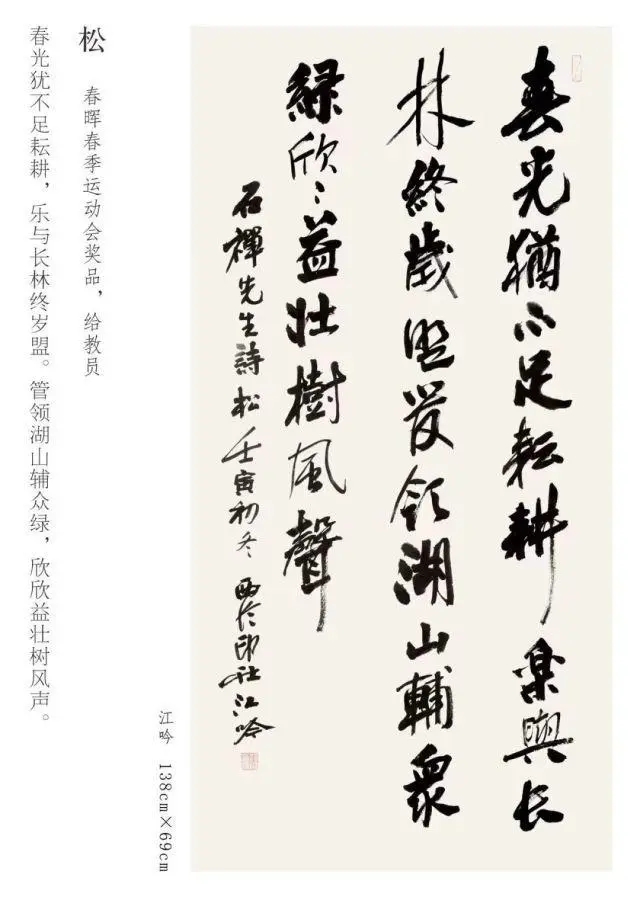 春光猶不足耘耕樂與長
林終歲盟管領湖山輔衆
綠欣〻益壯樹風聲
石禪先生詩松壬寅初冬西泠印社江吟
江吟 138cm×69cm
松 春晖春季运动会奖品，给教员
春光犹不足耘耕，乐与长林终岁盟。管领湖山辅众绿，欣欣益壮树风声。